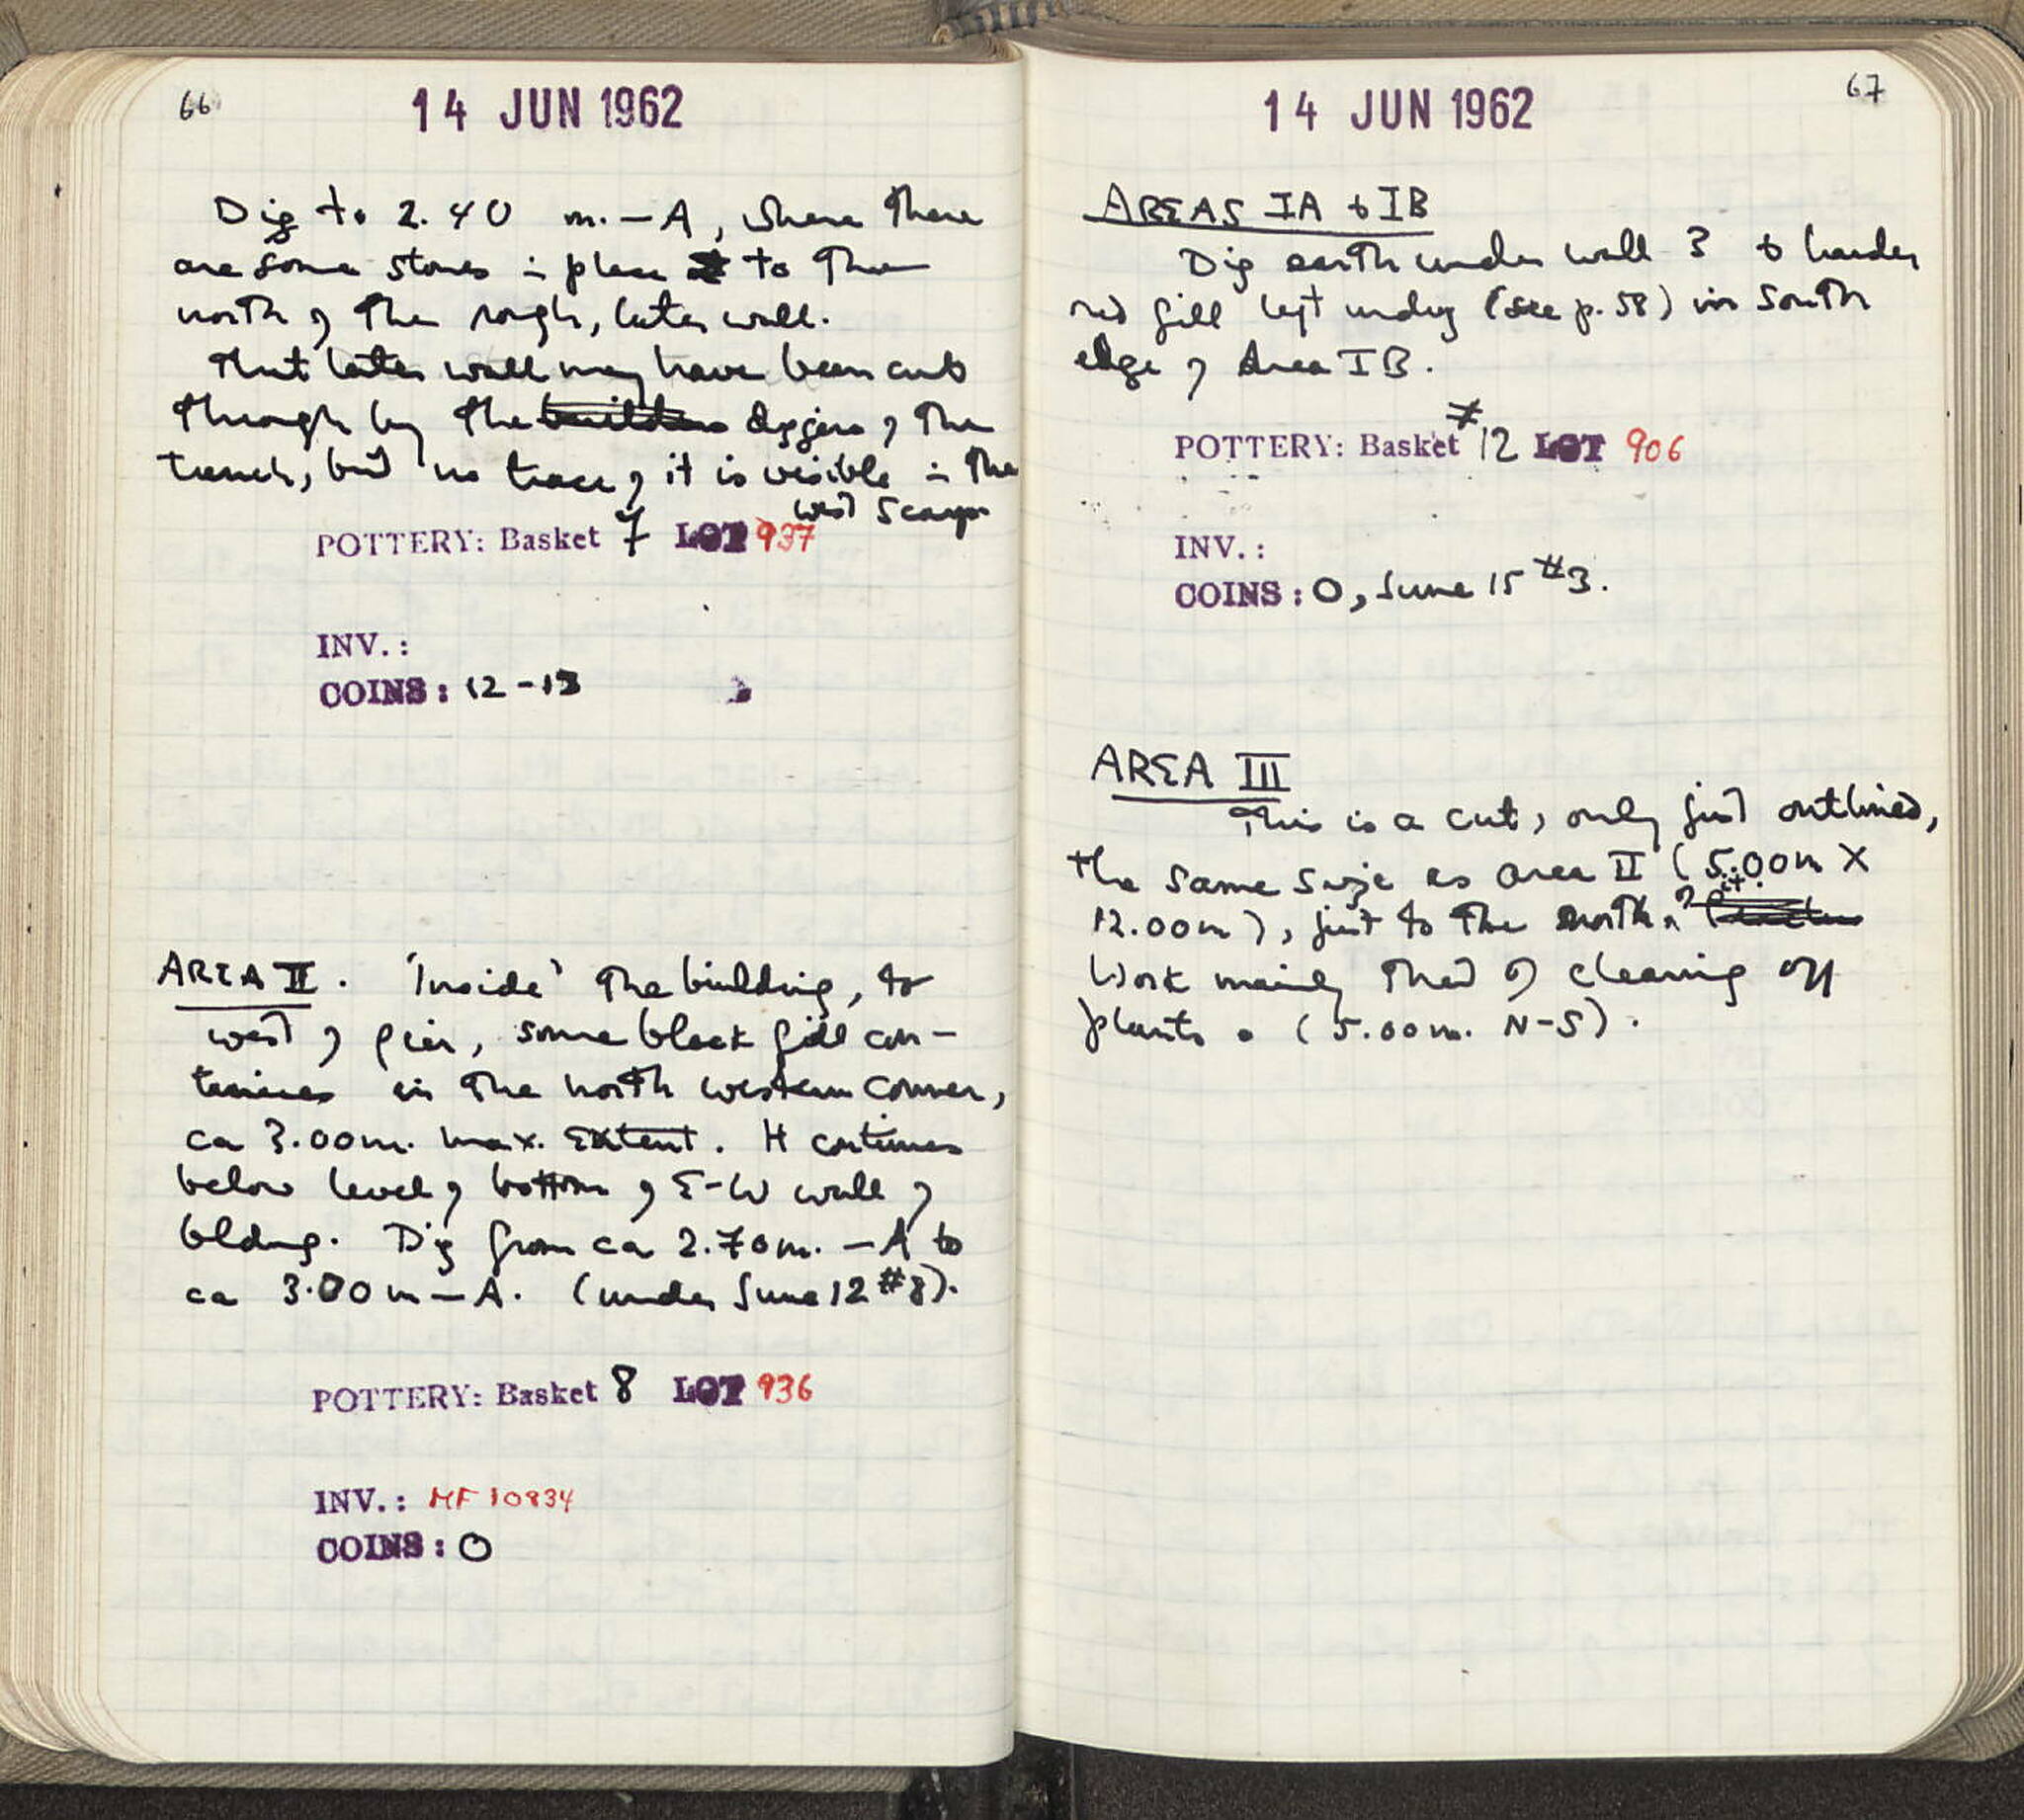 66
14 JUN 1962
Dig to 2.40 m. - A, where there
are some stones in place to the
north of the rough, later wall.
That later wall may have been cut
through by the builders diggers of the
trench, but no trace of it is visible in the
west scarp
POTTERY: Basket 7 LOT 937
INV. :
COINS : 12 - 13
AREA II. 'Inside' the building, to
west of pier, some black fill con-
tinues in the north western corner,
ca 3.00 m. max. extent. It continues
below level of bottom of E-W wall of
bldng. Dig from ca 2.70 m. - A to
ca 3.00 m - A. (under June 12 #8).
POTTERY: Basket 8 LOT 936
INV. : MF 10834
COINS : 0
67
14 JUN 1962
AREAS IA & IB
Dig earth under wall 3 & harder
red fill left undug (see p. 58) in south
edge of Area IB.
POTTERY: Basket #12 LOT 906
INV. :
COINS : 0, June 15 #3.
AREA III
This is a cut, only just outlined,
the same size as area II (5.00m X
12.00m), just to the north of it.
Work mainly that of clearing off
plants. (5.00m. N-S).